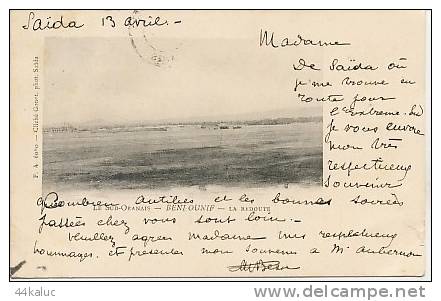 Saïda 13 avril. -
Madame
De Saïda où
je me trouve en
route pour
l'Extrême-Sud
je vous envoie
mon très
respectueux
souvenir
P. A. - Cliché Geiser, phot. Saïda
LE SUD-ORANAIS - BENI-OUNIF - LA REDOUTE
Combien Antibes et les bonnes soirées
passées chez vous sont loin. -
Veuillez agréer madame mes respectueux
hommages et présenter mon souvenir à Mr
©44kaluc
delcampe.net